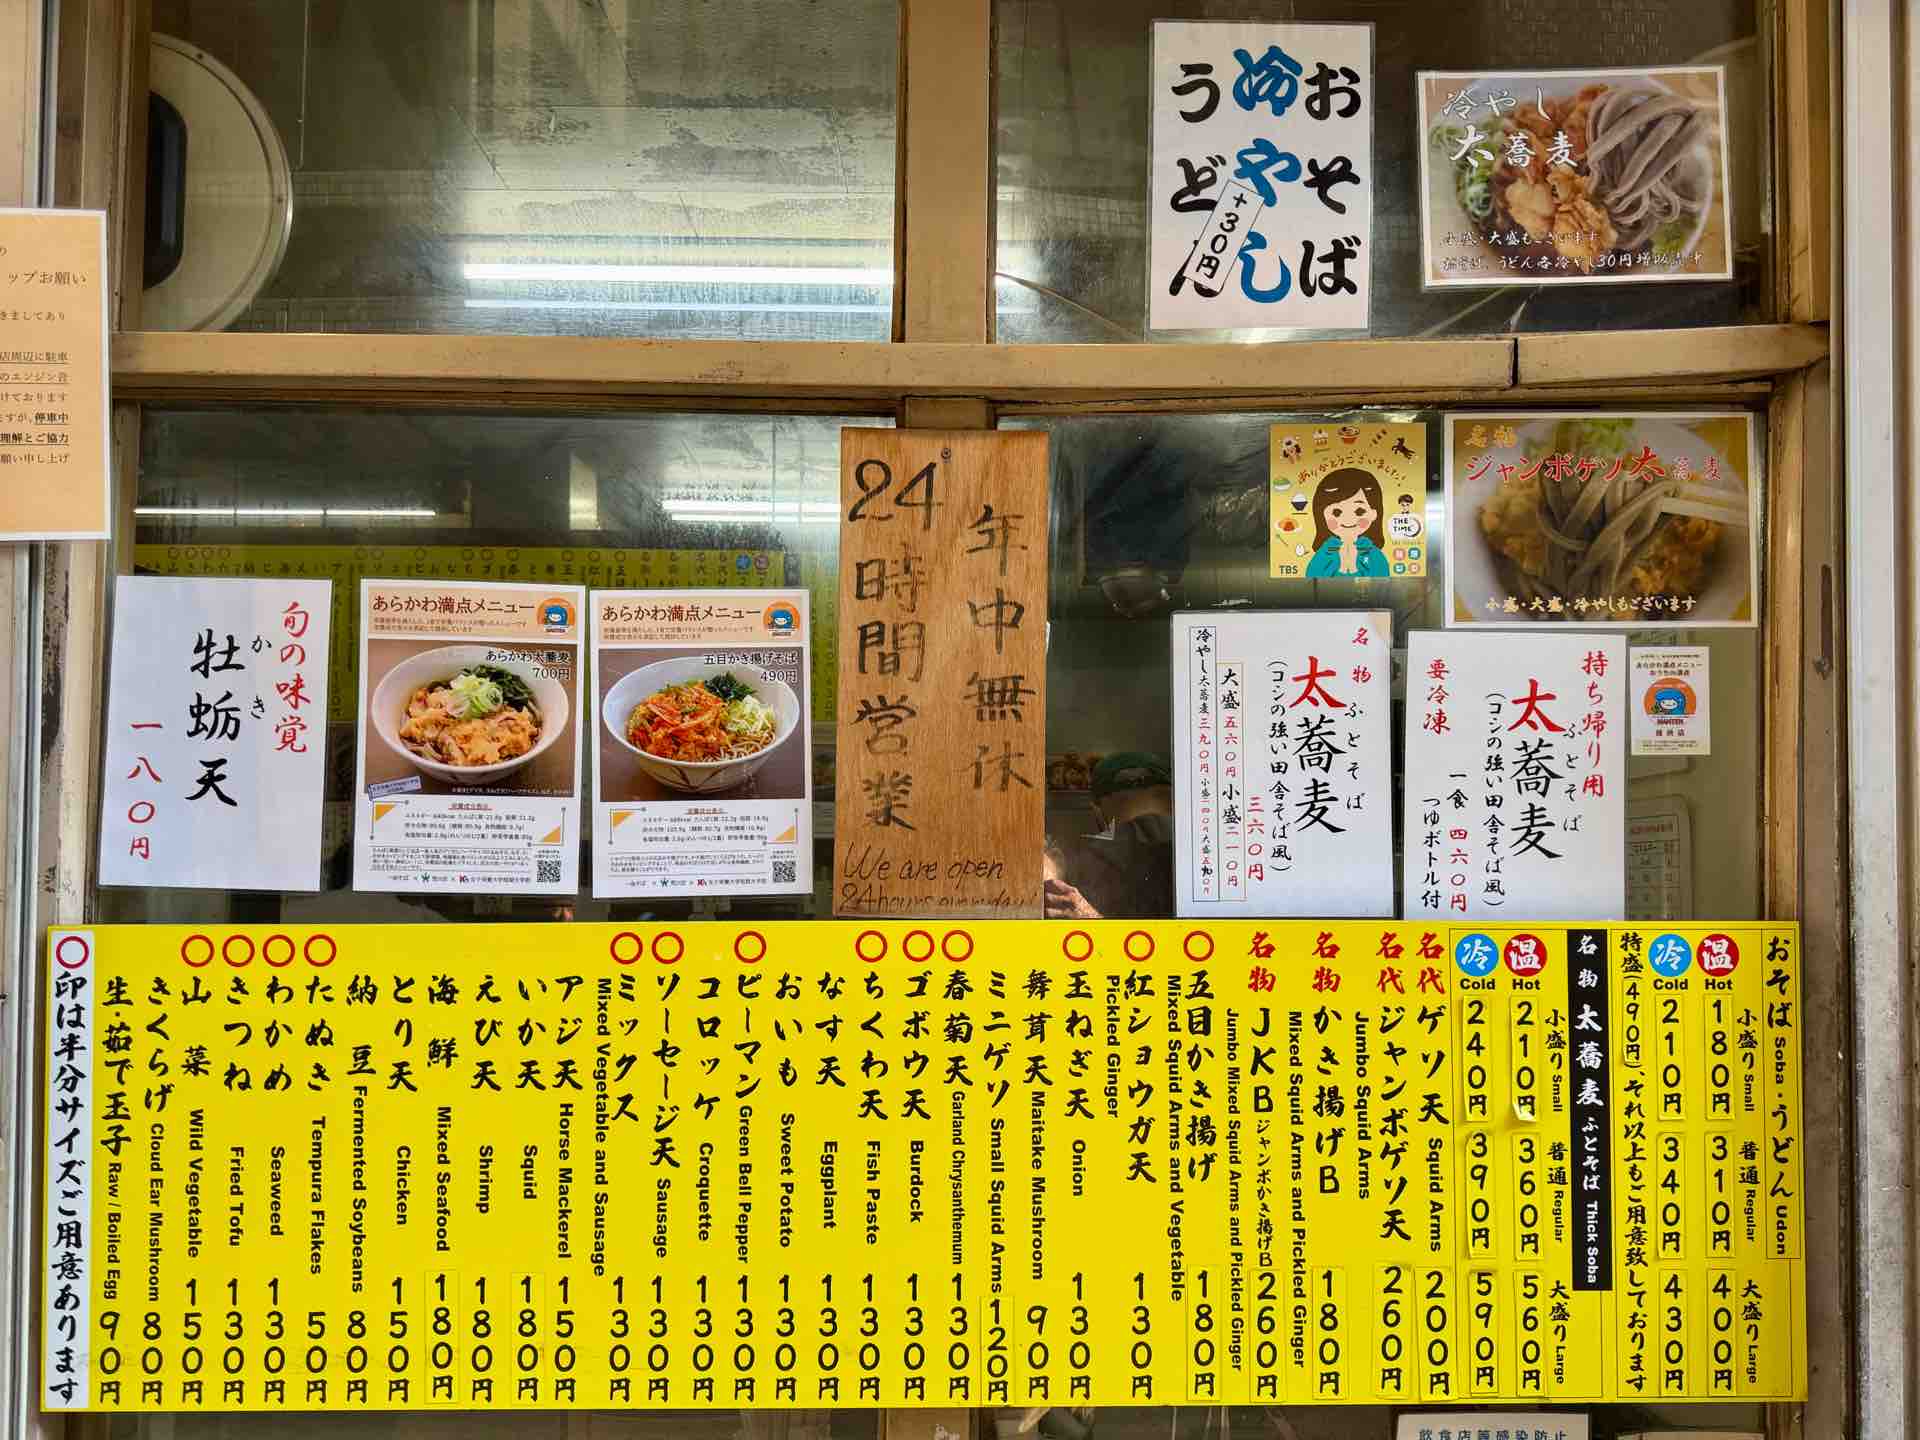 おそば
冷やし
うどん
+30円
冷やし
太蕎麦
小盛・大盛もございます
ップお願い
きましてあり
店周辺に駐車
のエンジン音
けております
ますが、停車中
理解とご協力
願い申し上げ
年中無休
24時間営業
We are open
24hours everyday!
ありがとうございました!
THE TIME'
TBS
名物
ジャンボゲソ太蕎麦
小盛・大盛・冷やしもございます
旬の味覚
牡蛎天
かき
一八〇円
あらかわ満点メニュー
あらかわ太蕎麦
700円
あらかわ満点メニュー
五目かき揚げそば
490円
名物
太蕎麦
ふとそば
(コシの強い田舎そば風)
三六〇円
大盛五六〇円 小盛二一〇円
冷やし太蕎麦三九〇円 小盛二四〇円
持ち帰り用
太蕎麦
ふとそば
(コシの強い田舎そば風)
一食 四六〇円
つゆボトル付
要冷凍
あらかわ満点メニュー
おそば・うどん Soba・Udon
小盛り Small 普通 Regular 大盛り Large
温 Hot 180円 310円 400円
冷 Cold 210円 340円 430円
特盛(490円)、それ以上もご用意致しております
名物 太蕎麦 ふとそば Thick Soba
小盛り Small 普通 Regular 大盛り Large
温 Hot 210円 360円 560円
冷 Cold 240円 390円 590円
名代 ゲソ天 Squid Arms 200円
名代 ジャンボゲソ天 Jumbo Squid Arms 260円
名物 かき揚げB Mixed Squid Arms and Pickled Ginger 180円
名物 JKB ジャンボかき揚げB Jumbo Mixed Squid Arms and Pickled Ginger 260円
〇 五目かき揚げ Mixed Squid Arms and Vegetable 180円
〇 紅ショウガ天 Pickled Ginger 130円
〇 玉ねぎ天 Onion 130円
舞茸天 Maitake Mushroom 90円
ミニゲソ Small Squid Arms 120円
〇 春菊天 Garland Chrysanthemum 130円
〇 ゴボウ天 Burdock 130円
〇 ちくわ天 Fish Paste 130円
なす天 Eggplant 130円
おいも Sweet Potato 130円
〇 ピーマン Green Bell Pepper 130円
コロッケ Croquette 130円
〇 ソーセージ天 Sausage 130円
〇 ミックス Mixed Vegetable and Sausage 130円
アジ天 Horse Mackerel 150円
いか天 Squid 180円
えび天 Shrimp 180円
海鮮 Mixed Seafood 180円
とり天 Chicken 150円
納豆 Fermented Soybeans 80円
〇 たぬき Tempura Flakes 50円
〇 わかめ Seaweed 130円
〇 きつね Fried Tofu 130円
〇 山菜 Wild Vegetable 150円
きくらげ Cloud Ear Mushroom 80円
生・茹で玉子 Raw / Boiled Egg 90円
〇印は半分サイズご用意あります
飲食店等感染防止